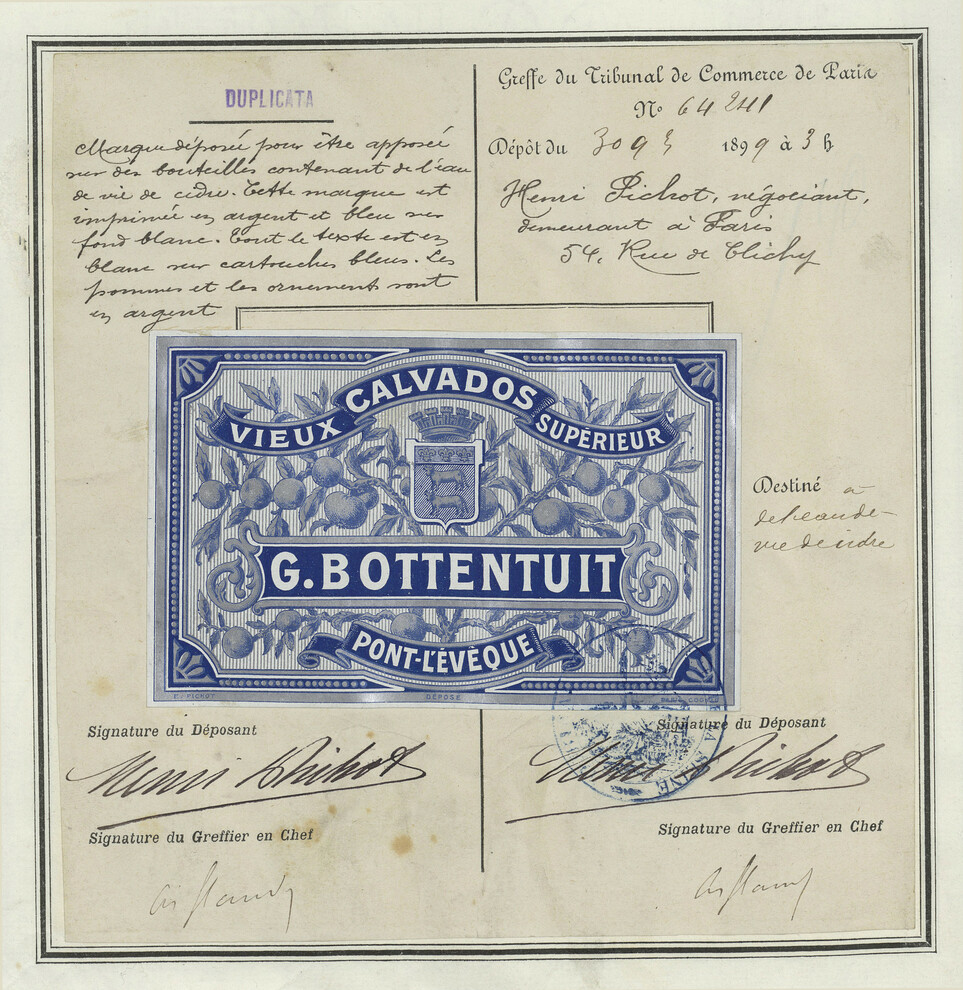 DUPLICATA
Marque déposée pour être apposée
sur des bouteilles contenant de l'eau
de vie de cidre. Cette marque est
imprimée en argent et bleu sur
fond blanc. Tout le texte est en
blanc sur cartouches bleus. Les
pommes et les ornements sont
en argent
Greffe du Tribunal de Commerce de Paris
No 64241
Dépôt du 30 9 1899 à 3 h
Henri Pichot, négociant,
demeurant à Paris
54, Rue de Clichy
VIEUX CALVADOS SUPÉRIEUR
G. BOTTENTUIT
PONT-L'ÉVÊQUE
DÉPOSÉ
Destiné à
de l'eau de
vie de cidre
Signature du Déposant
Henri Pichot
Signature du Greffier en Chef
Signature du Déposant
Henri Pichot
SEINE
Signature du Greffier en Chef